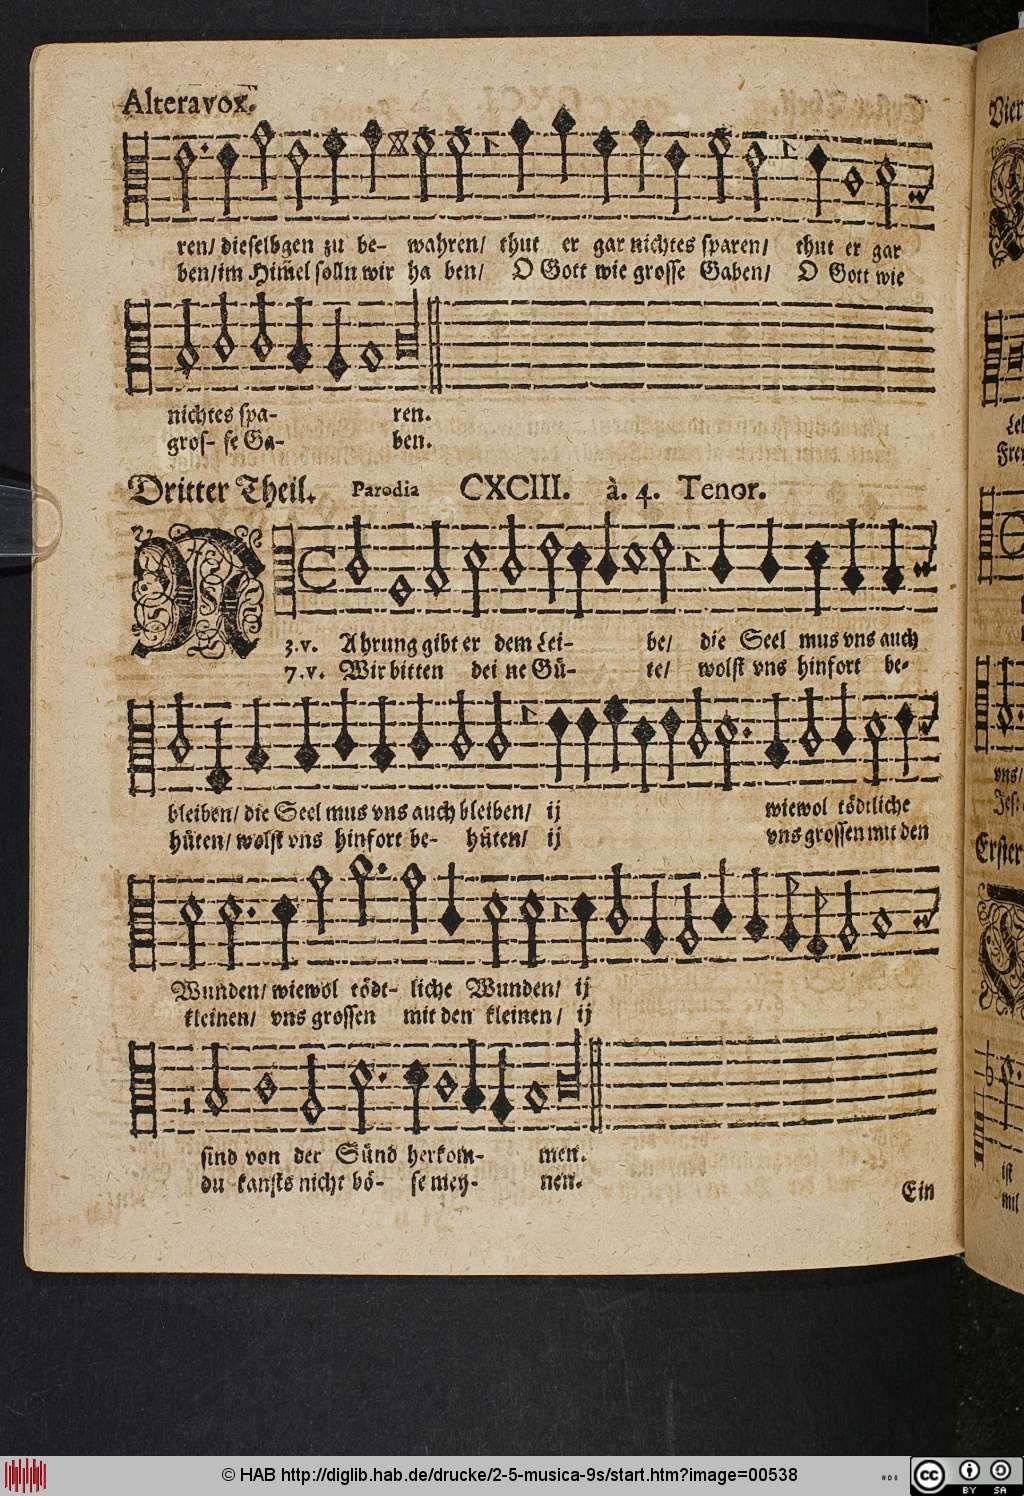 Altera vox.
ren/ dieselbgen zu be- wahren/ thut er gar nichtes sparen/ thut er gar
ben/ im Him̃el solln wir ha ben/ O Gott wie grosse Gaben/ O Gott wie
nichtes spa- ren.
gros- se Ga- ben.
Dritter Theil. Parodia CXCIII. à. 4. Tenor.
N
3.v. Ahrung gibt er dem Lei- be/ die Seel mus vns auch
7.v. Wir bitten dei ne Gü- te/ wolst vns hinfort be-
bleiben/ die Seel mus vns auch bleiben/ ij wiewol tödtliche
hüten/ wolst vns hinfort be- hüten/ ij vns grossen mit den
Wunden/ wiewol tödt- liche Wunden/ ij
kleinen/ vns grossen mit den kleinen/ ij
sind von der Sünd herkom- men.
du kansts nicht bö- se mey- nen.
Ein
Vier
Le
Fre
vns/
Jes
Erster
ist
mit
© HAB http://diglib.hab.de/drucke/2-5-musica-9s/start.htm?image=00538
cc BY SA